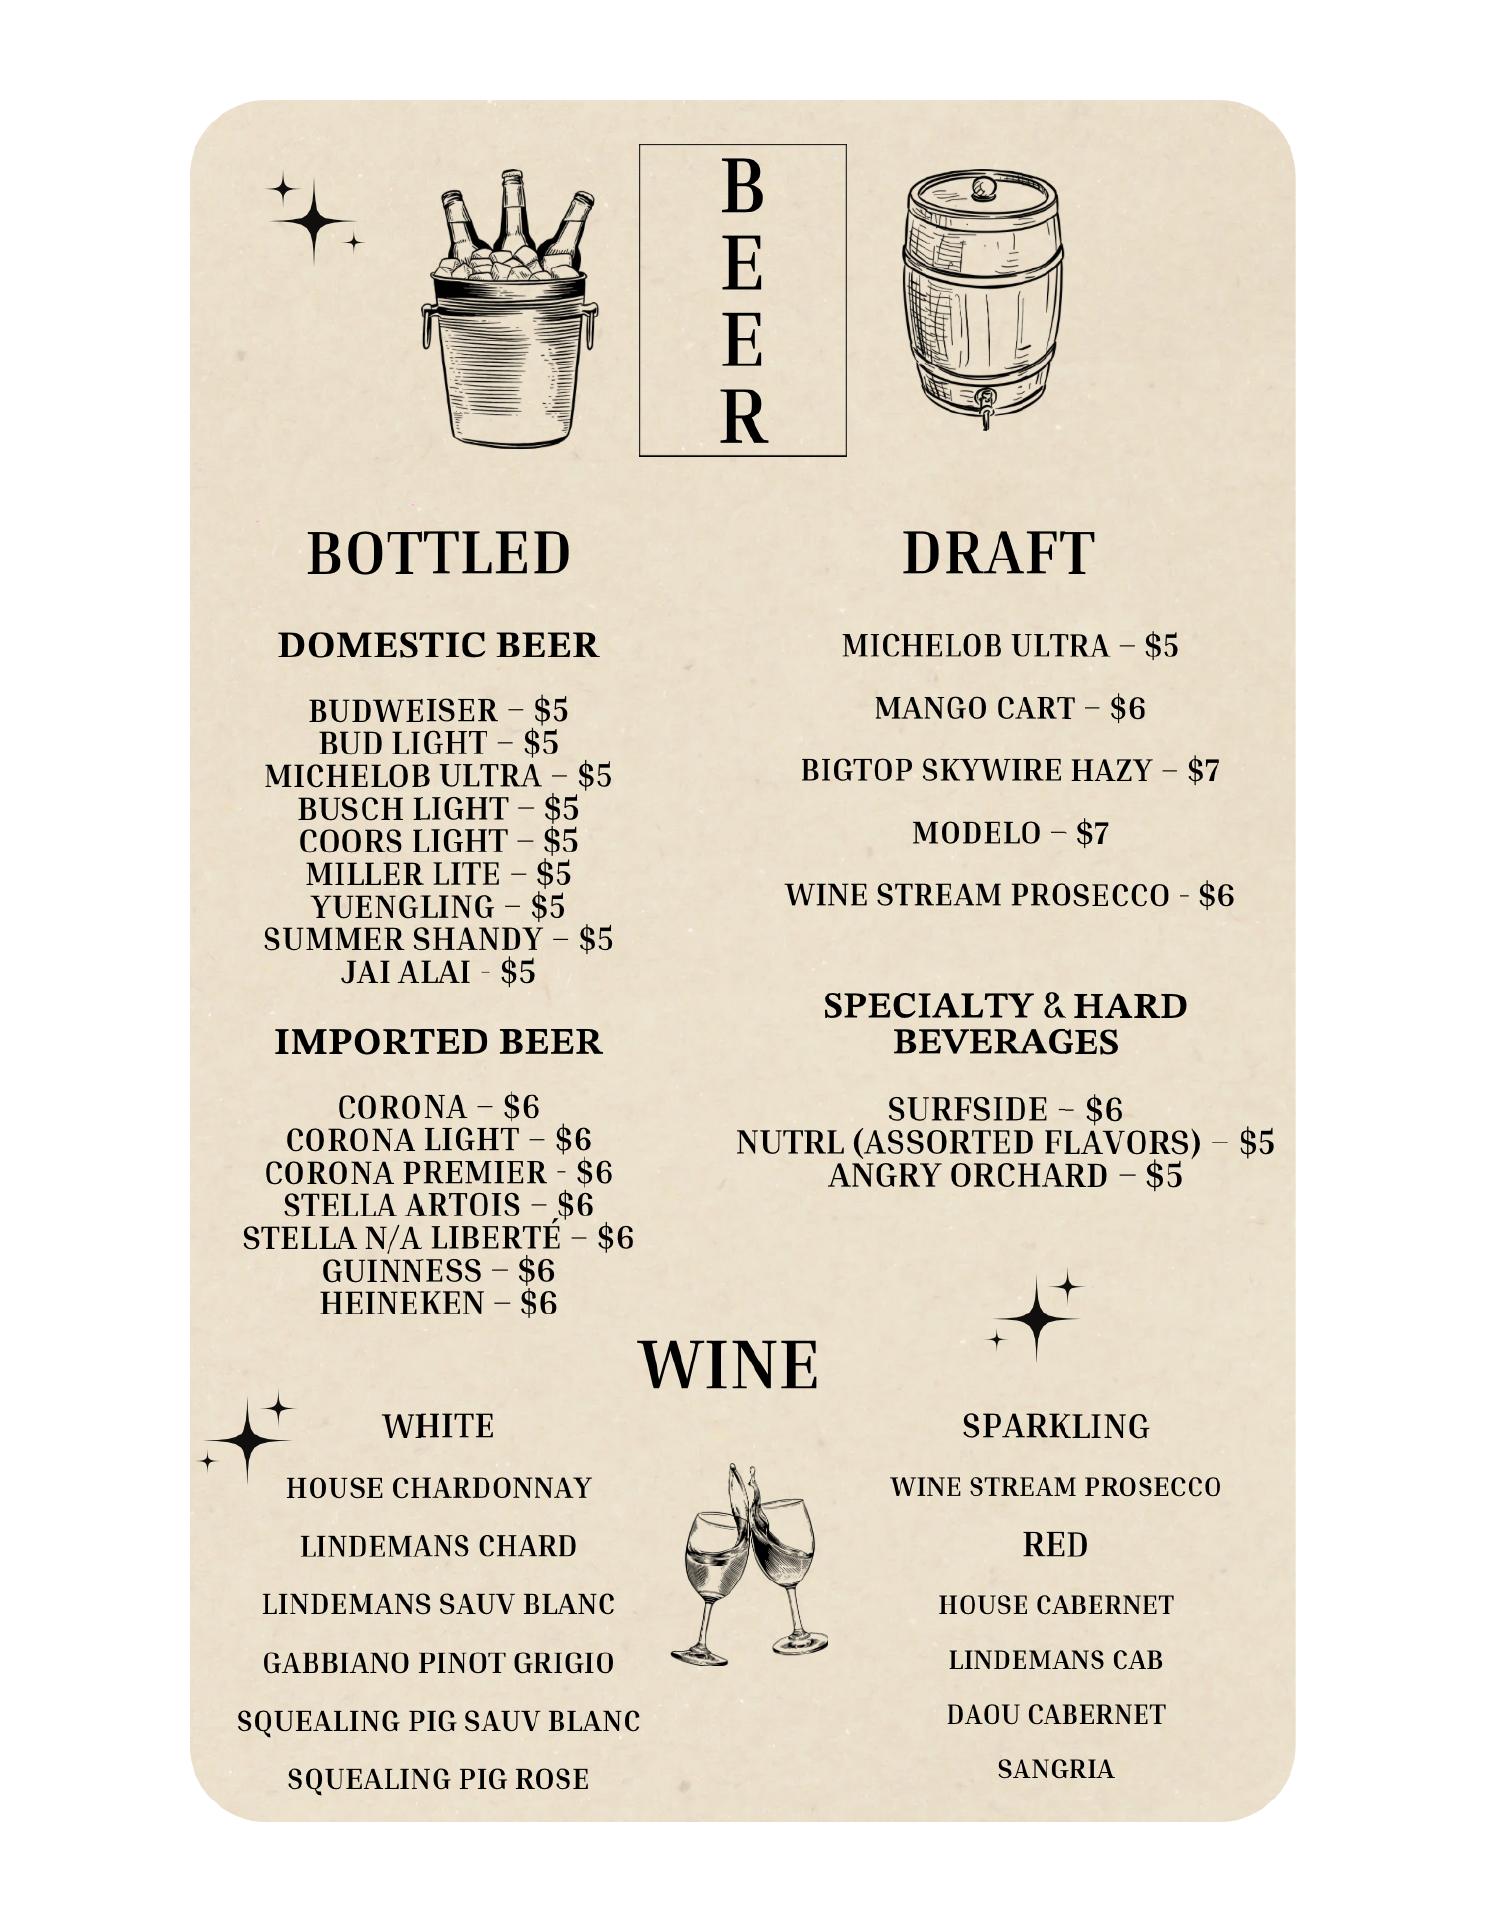 BEER
BOTTLED
DOMESTIC BEER
BUDWEISER – $5
BUD LIGHT – $5
MICHELOB ULTRA – $5
BUSCH LIGHT – $5
COORS LIGHT – $5
MILLER LITE – $5
YUENGLING – $5
SUMMER SHANDY – $5
JAI ALAI - $5
IMPORTED BEER
CORONA – $6
CORONA LIGHT – $6
CORONA PREMIER - $6
STELLA ARTOIS – $6
STELLA N/A LIBERTÉ – $6
GUINNESS – $6
HEINEKEN – $6
DRAFT
MICHELOB ULTRA – $5
MANGO CART – $6
BIGTOP SKYWIRE HAZY – $7
MODELO – $7
WINE STREAM PROSECCO - $6
SPECIALTY & HARD
BEVERAGES
SURFSIDE – $6
NUTRL (ASSORTED FLAVORS) – $5
ANGRY ORCHARD – $5
WINE
WHITE
HOUSE CHARDONNAY
LINDEMANS CHARD
LINDEMANS SAUV BLANC
GABBIANO PINOT GRIGIO
SQUEALING PIG SAUV BLANC
SQUEALING PIG ROSE
SPARKLING
WINE STREAM PROSECCO
RED
HOUSE CABERNET
LINDEMANS CAB
DAOU CABERNET
SANGRIA